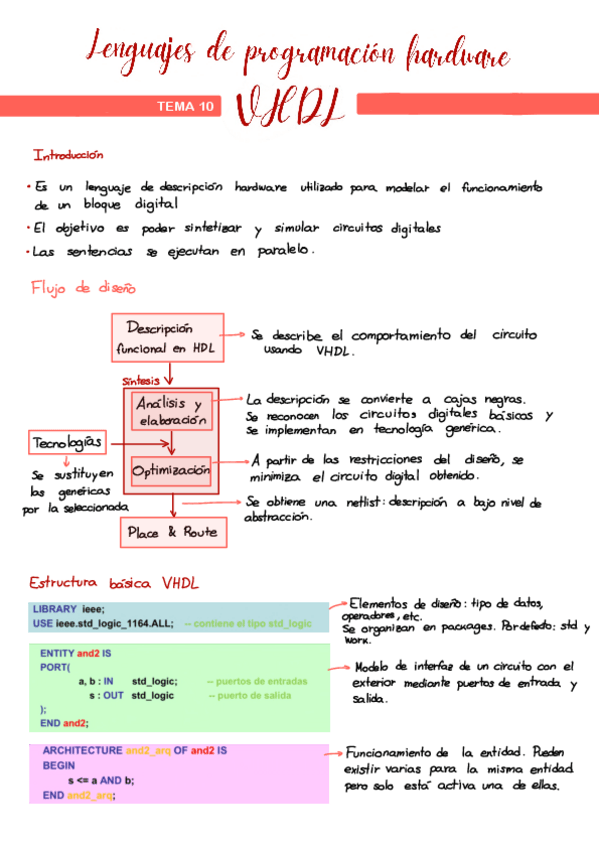 Lenguajes de programación hardware
TEMA 10
VHDL
Introducción
• Es un lenguaje de descripción hardware utilizado para modelar el funcionamiento
de un bloque digital
• El objetivo es poder sintetizar y simular circuitos digitales
• Las sentencias se ejecutan en paralelo.
Flujo de diseño
Descripción
funcional en HDL
Se describe el comportamiento del circuito
usando VHDL.
Síntesis
Análisis y
elaboración
La descripción se convierte a cajas negras.
Se reconocen los circuitos digitales básicos y
se implementan en tecnología genérica.
Tecnologías
Se sustituyen
las genéricas
por la seleccionada
Optimización
A partir de las restricciones del diseño, se
minimiza el circuito digital obtenido.
Se obtiene una netlist: descripción a bajo nivel de
abstracción.
Place & Route
Estructura básica VHDL
LIBRARY ieee;
USE ieee.std_logic_1164.ALL; -- contiene el tipo std_logic
Elementos de diseño: tipo de datos,
operadores, etc.
Se organizan en packages. Por defecto: std y
work.
ENTITY and2 IS
PORT(
a, b : IN std_logic; -- puertos de entradas
s : OUT std_logic -- puerto de salida
);
END and2;
Modelo de interfaz de un circuito con el
exterior mediante puertos de entrada y
salida.
ARCHITECTURE and2_arq OF and2 IS
BEGIN
s <= a AND b;
END and2_arq;
Funcionamiento de la entidad. Pueden
existir varias para la misma entidad
pero solo está activa una de ellas.